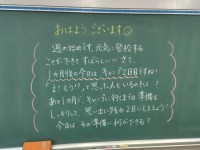 おはようございます
週の始めです。元気に登校する
ことができてすばらしい!! さて、
1か月後の今日はキャンプ2日目ですね!
「え!もう!?」って思った人もいるのでは?
あと1か月で、キャンプに行くまでの準備を
しっかりして、思い出に残る2日にしましょう!
今日は、その準備に何ができる?